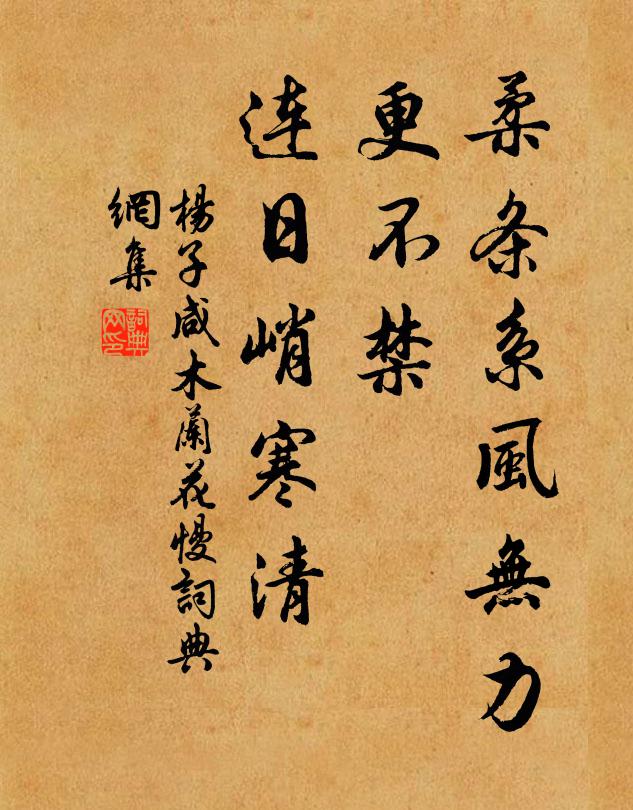 柔条系風無力
更不禁
連日峭寒清
楊子咸木蘭花慢詞典
網集
詞典
网印